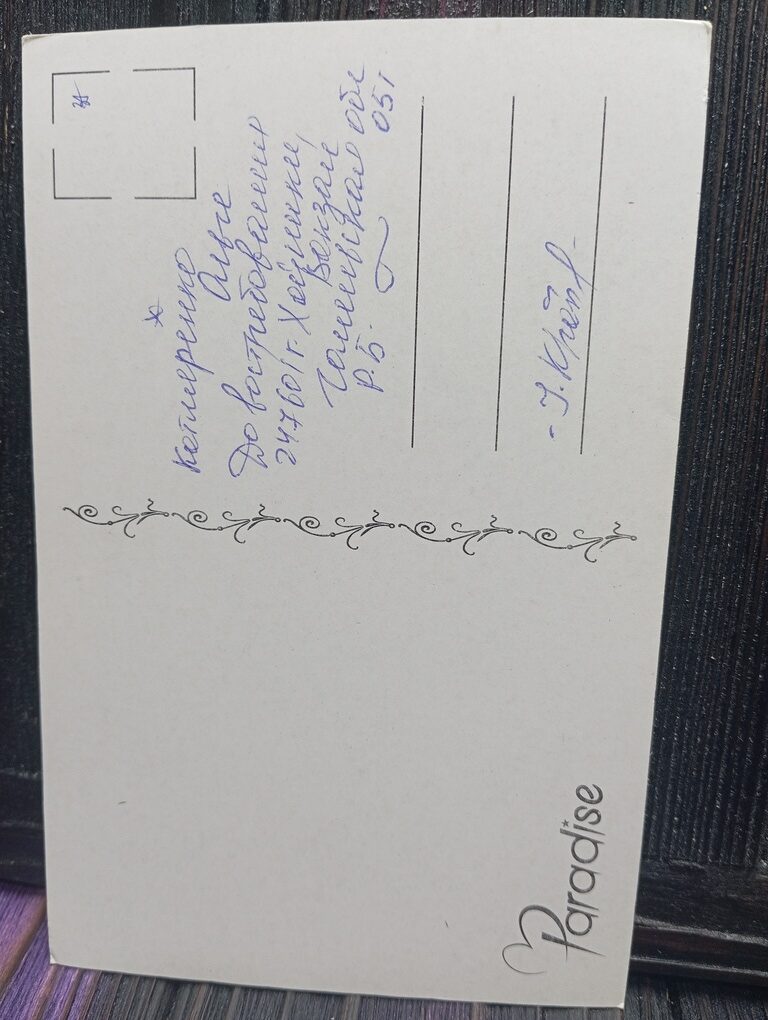 Котлеренко
Ольге
До востребования
247601 г. Хойники,
Вокзал,
Гомельская обл
Р.Б.
Paradise